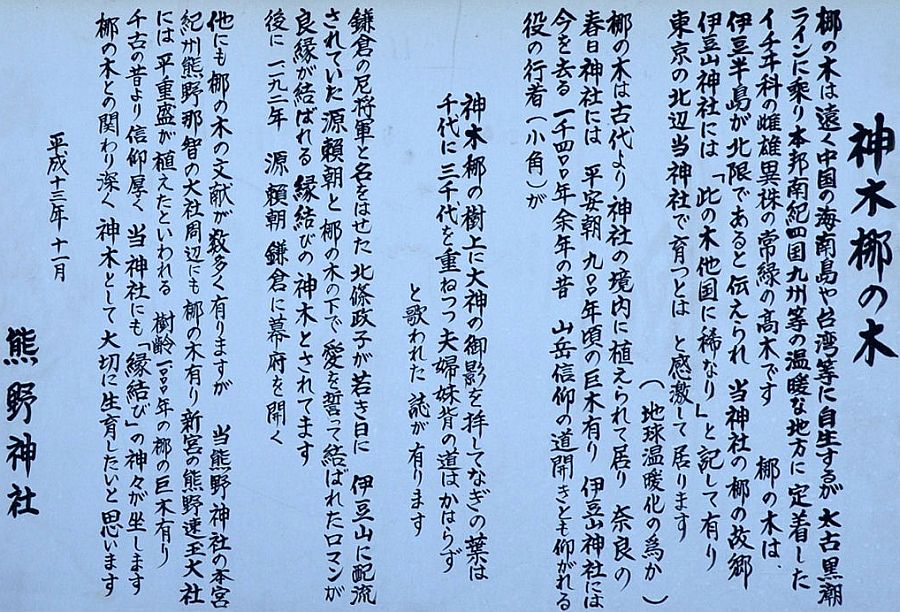 神木梛の木
梛の木は遠く中国の海南島や台湾等に自生するが太古黒潮
ラインに乗り本邦南紀四国九州等の温暖な地方に定着した
イチヰ科の雌雄異株の常緑の高木です 梛の木は、
伊豆半島が北限であると伝えられ 当神社の梛の故郷
伊豆山神社には「此の木他国に稀なり」と記して有り
東京の北辺当神社で育つとは と感激して居ります
(地球温暖化の為か)
梛の木は古代より神社の境内に植えられて居り 奈良の
春日神社には 平安朝 九〇〇年頃の巨木有り 伊豆山神社には
今を去る 一千四〇〇年余年の昔 山岳信仰の道開きとも仰がれる
役の行者(小角)が
神木梛の樹上に大神の御影を拝してなぎの葉は
千代に三千代を重ねつつ夫婦妹背の道はかはらず
と歌われた誌が有ります
鎌倉の尼将軍と名をはせた 北條政子が若き日に 伊豆山に配流
されていた源頼朝と 梛の木の下で愛を誓って結ばれたロマンが
良縁が結ばれる 縁結びの神木とされてます
後に一一九二年 源頼朝 鎌倉に幕府を開く
他にも梛の木の文献が数多く有りますが 当熊野神社の本宮
紀州熊野那智の大社周辺にも梛の木有り 新宮の熊野速玉大社
には 平重盛が植えたといわれる 樹齢一〇〇〇年の梛の巨木有り
千古の昔より信仰厚く 当神社にも「縁結び」の神々が坐します
梛の木との関わり深く 神木として大切に生育したいと思います
平成十三年十一月
熊野神社